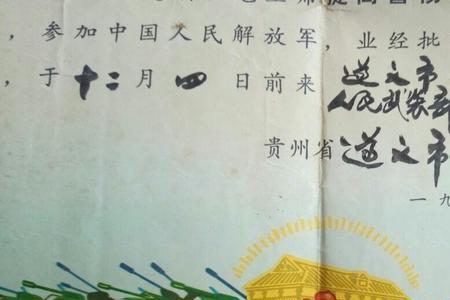 ，参加中国人民解放军，业经批
，于十二月四日前来遵义市
人民武装部
贵州省遵义市
一九